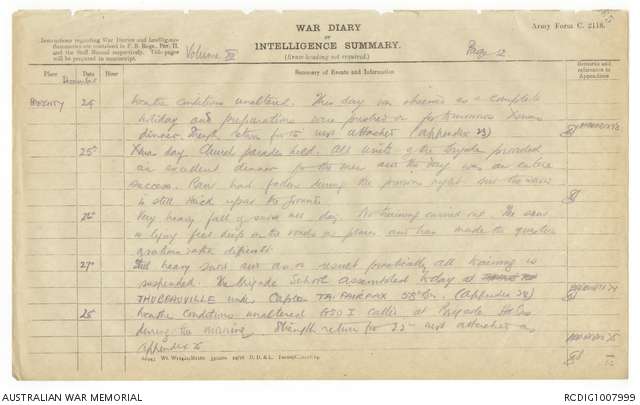 WAR DIARY
or
INTELLIGENCE SUMMARY.
(Erase heading not required.)
Army Form C. 2118.
Instructions regarding War Diaries and Intelligence
Summaries are contained in F. S. Regs., Part II.
and the Staff Manual respectively. Title-pages
will be prepared in manuscript.
Volume
Page 12
Place
Date
Hour
Summary of Events and Information
Remarks and
reference to
Appendices
December
24 Weather conditions unaltered. This day was observed as a complete
holiday and preparations were pushed on for tomorrows Xmas
dinner. Strength return for 24 next attached (Appendix 23)
25th Xmas day. Church parades held. All units of the Brigade provided
an excellent dinner for the men and the day was an entire
success. Rain had fallen during the previous night but the snow
is still thick upon the ground.
26 Very heavy fall of snow all day. No training carried out. The snow
is lying feet deep on the roads in places and has made the question
of rations rather difficult.
27th Still heavy snow and as a result practically all training is
suspended. The Brigade School assembled today at
THUBEAUVILLE under Captain T.A. FAIRFAX 55th Bn. (Appendix 24)
28 Weather conditions unaltered GSO I called at Brigade
during the morning. Strength return for next attached as
Appendix 25
AUSTRALIAN WAR MEMORIAL
RCDIG1007999